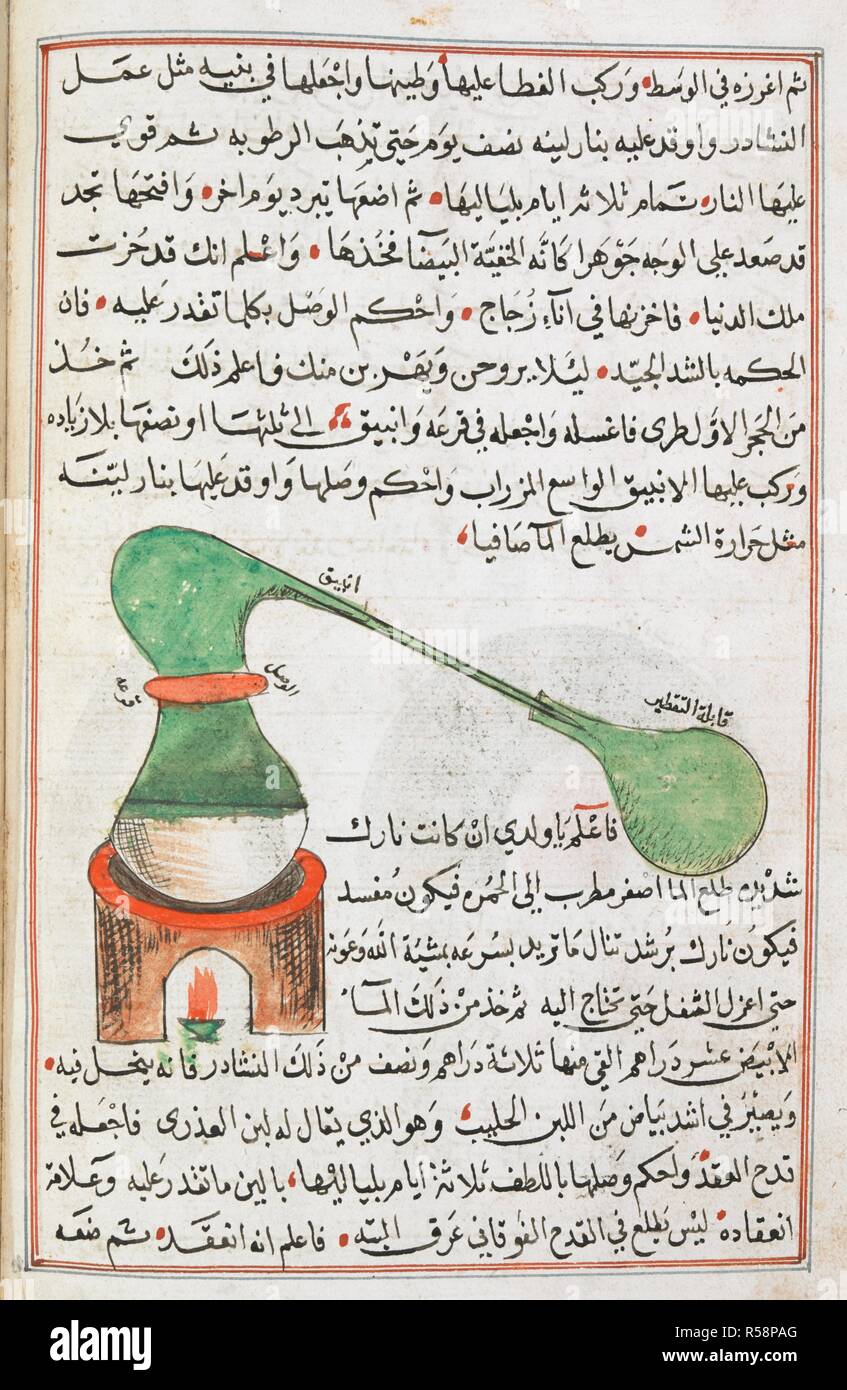 ثم اغرزه في الوسط وركب الغطا عليها وطينها واجعلها في بنيه مثل عمل
النشادر واوقد عليه بنار لينه نصف يوم حتى تذهب الرطوبه ثم قوي
عليها النار تمام ثلاثه ايام بلياليها ثم اضعها تبرد يوم اخر وافتحها تجد
قد صعد علي الوجه جوهرا كانه الخفيّة البيضآ فخذها واعلم انك قد حُزت
ملك الدنيا فاخزنها في انآءِ زُجاج واحكم الوصل بكلما تقدر عليه فان
الحكمه بالشد الجيّد ليئلا يروحن ويهربن منك فاعلم ذلك ثم خُذ
من الحجر الاوّل طرى فاغسله واجعله في قرعه وانبيق الى ثلثها او نصفها بلا زياده
وركب عليها الانبيق الواسع المزراب واحكم وصلها واوقد عليها بنار ليّنه
مثل حرارة الشمس يطلع المآ صافيا
انبيق
الوصل
قرعه
قابلة التقطير
فاعلم يا ولدي ان كانت نارك
شديده طلع الما اصفر مطرب الي الحمره فيكون مفسد
فيكون نارك برُشد تنال ما تريد بسرعه بمشيّة الله وعونه
حتي اعزل الثفل حتي تحتاج اليه ثم خذ من ذلك المآء
الابيض عشر دراهم القي منها ثلاثة دراهم ونصف من ذلك النشادر فانه ينحل فيه
ويصير في اشد بياض من اللبن الحليب وهو الذي يقال له لبن العذرى فاجعله في
قدح العقد واحكم وصلها باللطف ثلاثة ايام بلياليها بالين ما تقدر عليه وعلامة
انعقاده ليس يطلع في القدح الفوقاني عرق البته فاعلم انه انعقد ثم ضعه
alamy
Image ID: R58PAG
www.alamy.com